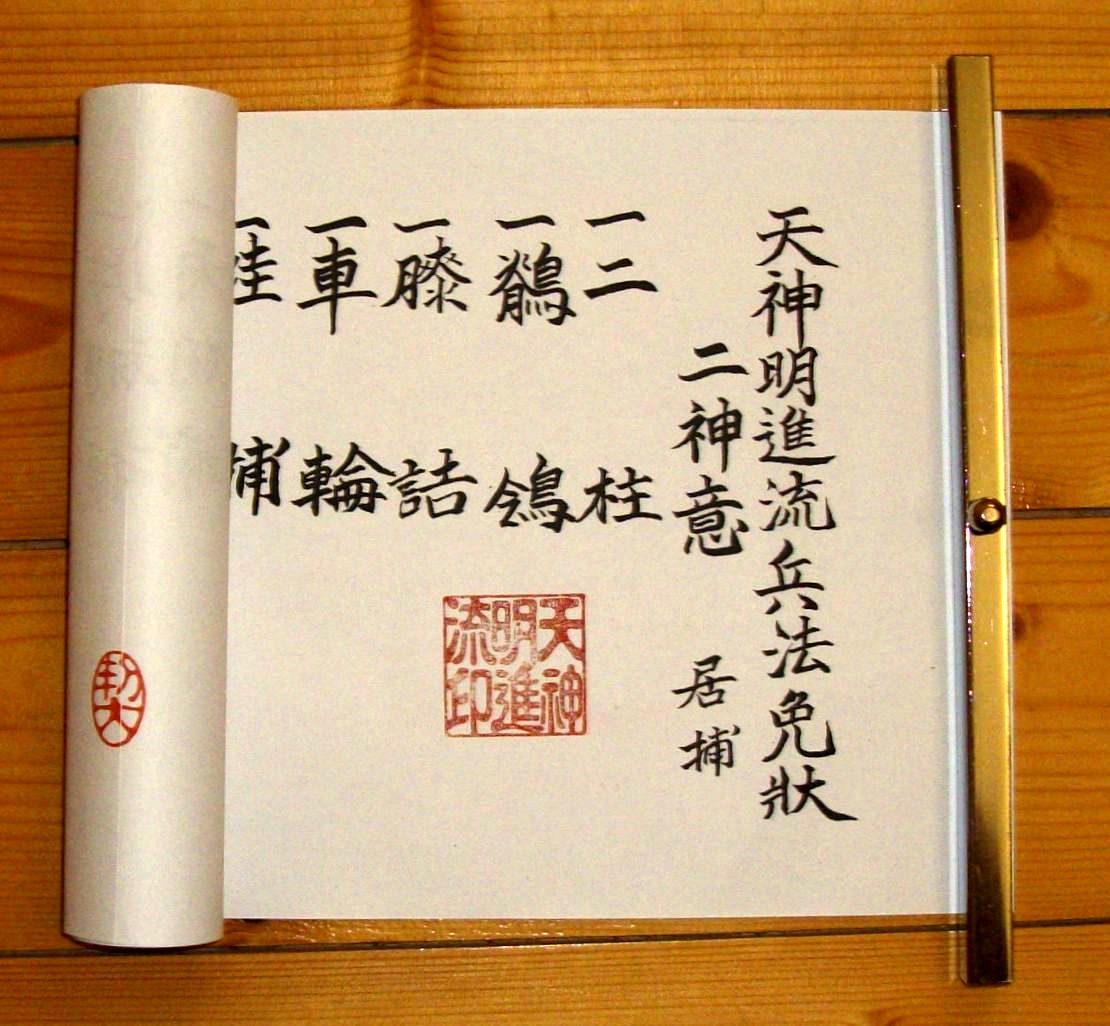 天神明進流兵法免狀
二神意 居捕
一二 柱
一鶺 鴒
一膝 詰
一車 輪
一 捕
天神
明進
流印
契